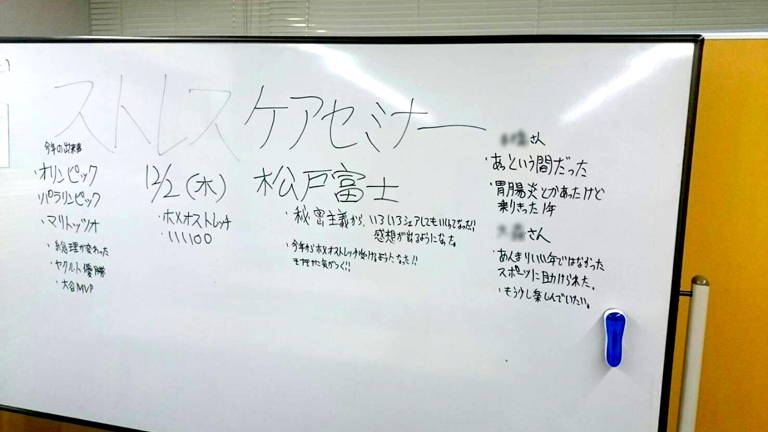 ストレスケアセミナー
今年の出来事
・オリンピック
パラリンピック
・マリトッツオ
・総理が変わった
・ヤクルト優勝
・大谷MVP
12/2(木)
・ホメオストレッチ
・111100
松戸富士
・秘密主義から、いろいろシェアしてもいいってなった!!
感想が出るようになった。
・今年からホメオストレッチ受けるようになった!!
気がつく!!
さん
・あっという間だった
・胃腸炎とかあったけど
乗りきった1年
さん
・あんまりいい年ではなかった
スポーツに助けられた。
・もう少し楽しんでいたい。